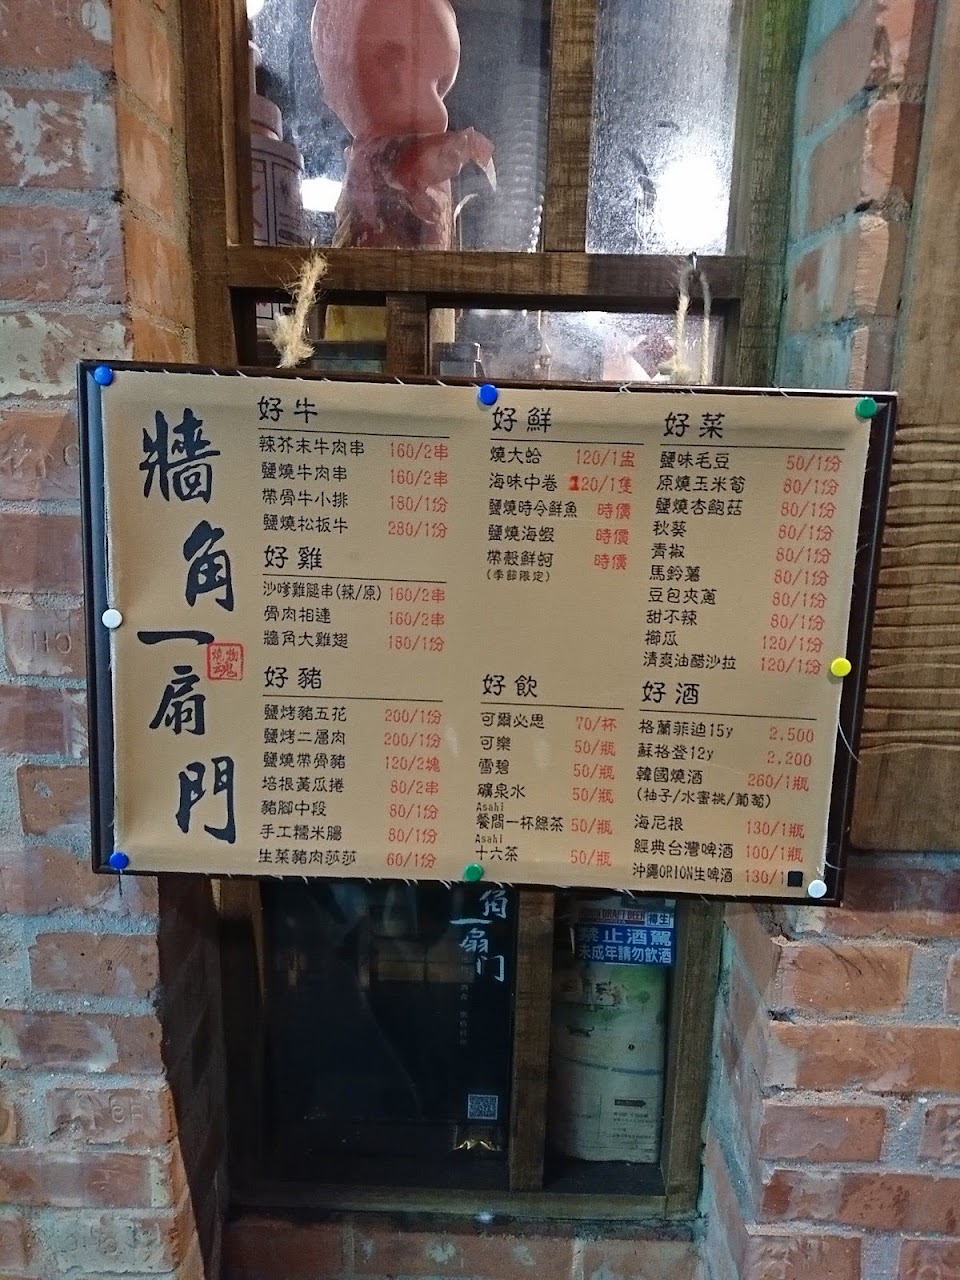 牆角一扇門
燒物
魂
好牛
辣芥末牛肉串 160/2串
鹽燒牛肉串 160/2串
帶骨牛小排 180/1份
鹽燒松扳牛 280/1份
好雞
沙嗲雞腿串(辣/原) 160/2串
骨肉相連 160/2串
牆角大雞翅 180/1份
好豬
鹽烤豬五花 200/1份
鹽烤二層肉 200/1份
鹽燒帶骨豬 120/2塊
培根黃瓜捲 80/2串
豬腳中段 80/1份
手工糯米腸 80/1份
生菜豬肉莎莎 60/1份
好鮮
燒大蛤 120/1盅
海味中卷 120/1隻
鹽燒時令鮮魚 時價
鹽燒海蝦 時價
帶殼鮮蚵 時價
(季節限定)
好飲
可爾必思 70/杯
可樂 50/瓶
雪碧 50/瓶
礦泉水 50/瓶
Asahi
餐間一杯綠茶 50/瓶
Asahi
十六茶 50/瓶
好菜
鹽味毛豆 50/1份
原燒玉米筍 80/1份
鹽燒杏鮑菇 80/1份
秋葵 80/1份
青椒 80/1份
馬鈴薯 80/1份
豆包夾蔥 80/1份
甜不辣 80/1份
櫛瓜 120/1份
清爽油醋沙拉 120/1份
好酒
格蘭菲迪15y 2,500
蘇格登12y 2,200
韓國燒酒 260/1瓶
(柚子/水蜜桃/葡萄)
海尼根 130/1瓶
經典台灣啤酒 100/1瓶
沖繩ORION生啤酒 130/1
角一扇门
禁止酒駕
未成年請勿飲酒